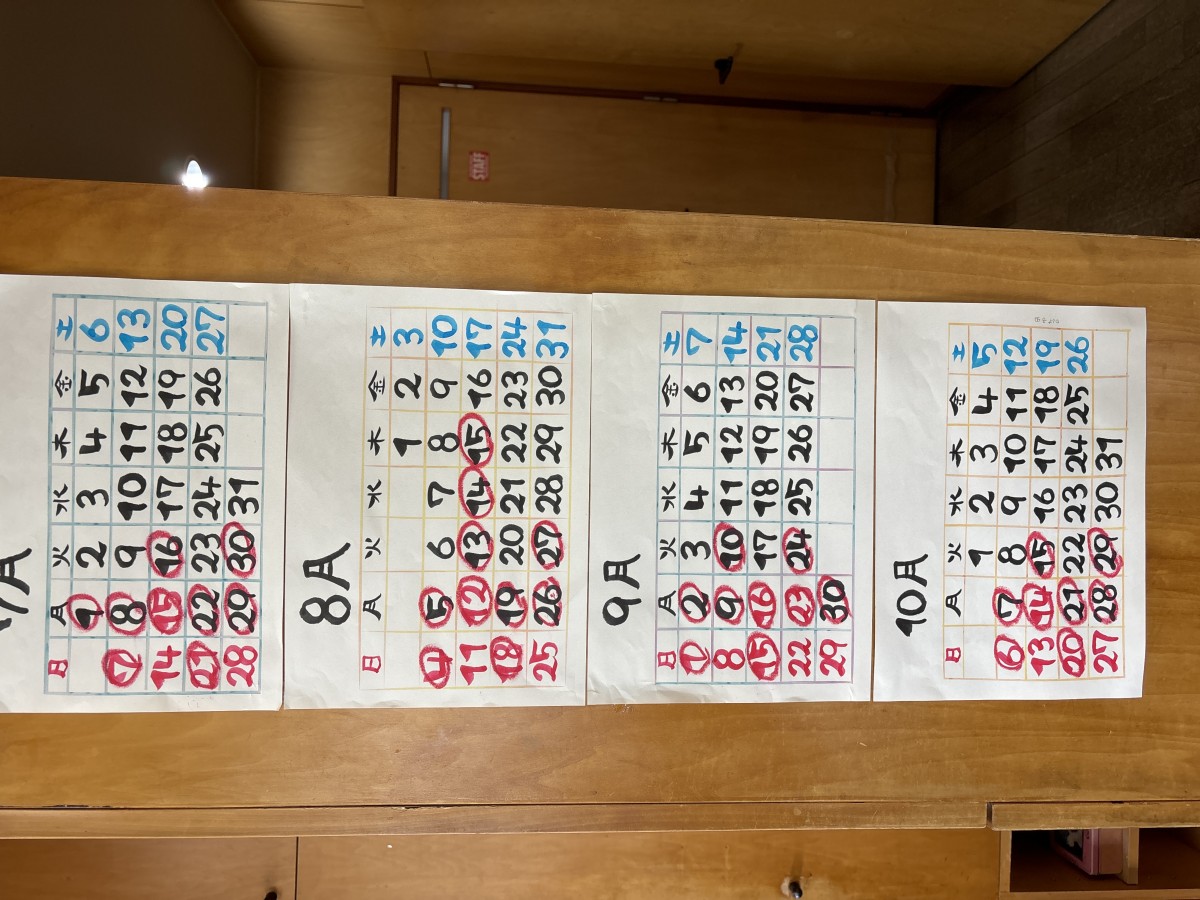 STAFF
7月
日 月 火 水 木 金 土
1 2 3 4 5 6
7 8 9 10 11 12 13
14 15 16 17 18 19 20
21 22 23 24 25 26 27
28 29 30 31
8月
日 月 火 水 木 金 土
1 2 3
4 5 6 7 8 9 10
11 12 13 14 15 16 17
18 19 20 21 22 23 24
25 26 27 28 29 30 31
9月
日 月 火 水 木 金 土
1 2 3 4 5 6 7
8 9 10 11 12 13 14
15 16 17 18 19 20 21
22 23 24 25 26 27 28
29 30
10月
日 月 火 水 木 金 土
1 2 3 4 5
6 7 8 9 10 11 12
13 14 15 16 17 18 19
20 21 22 23 24 25 26
27 28 29 30 31